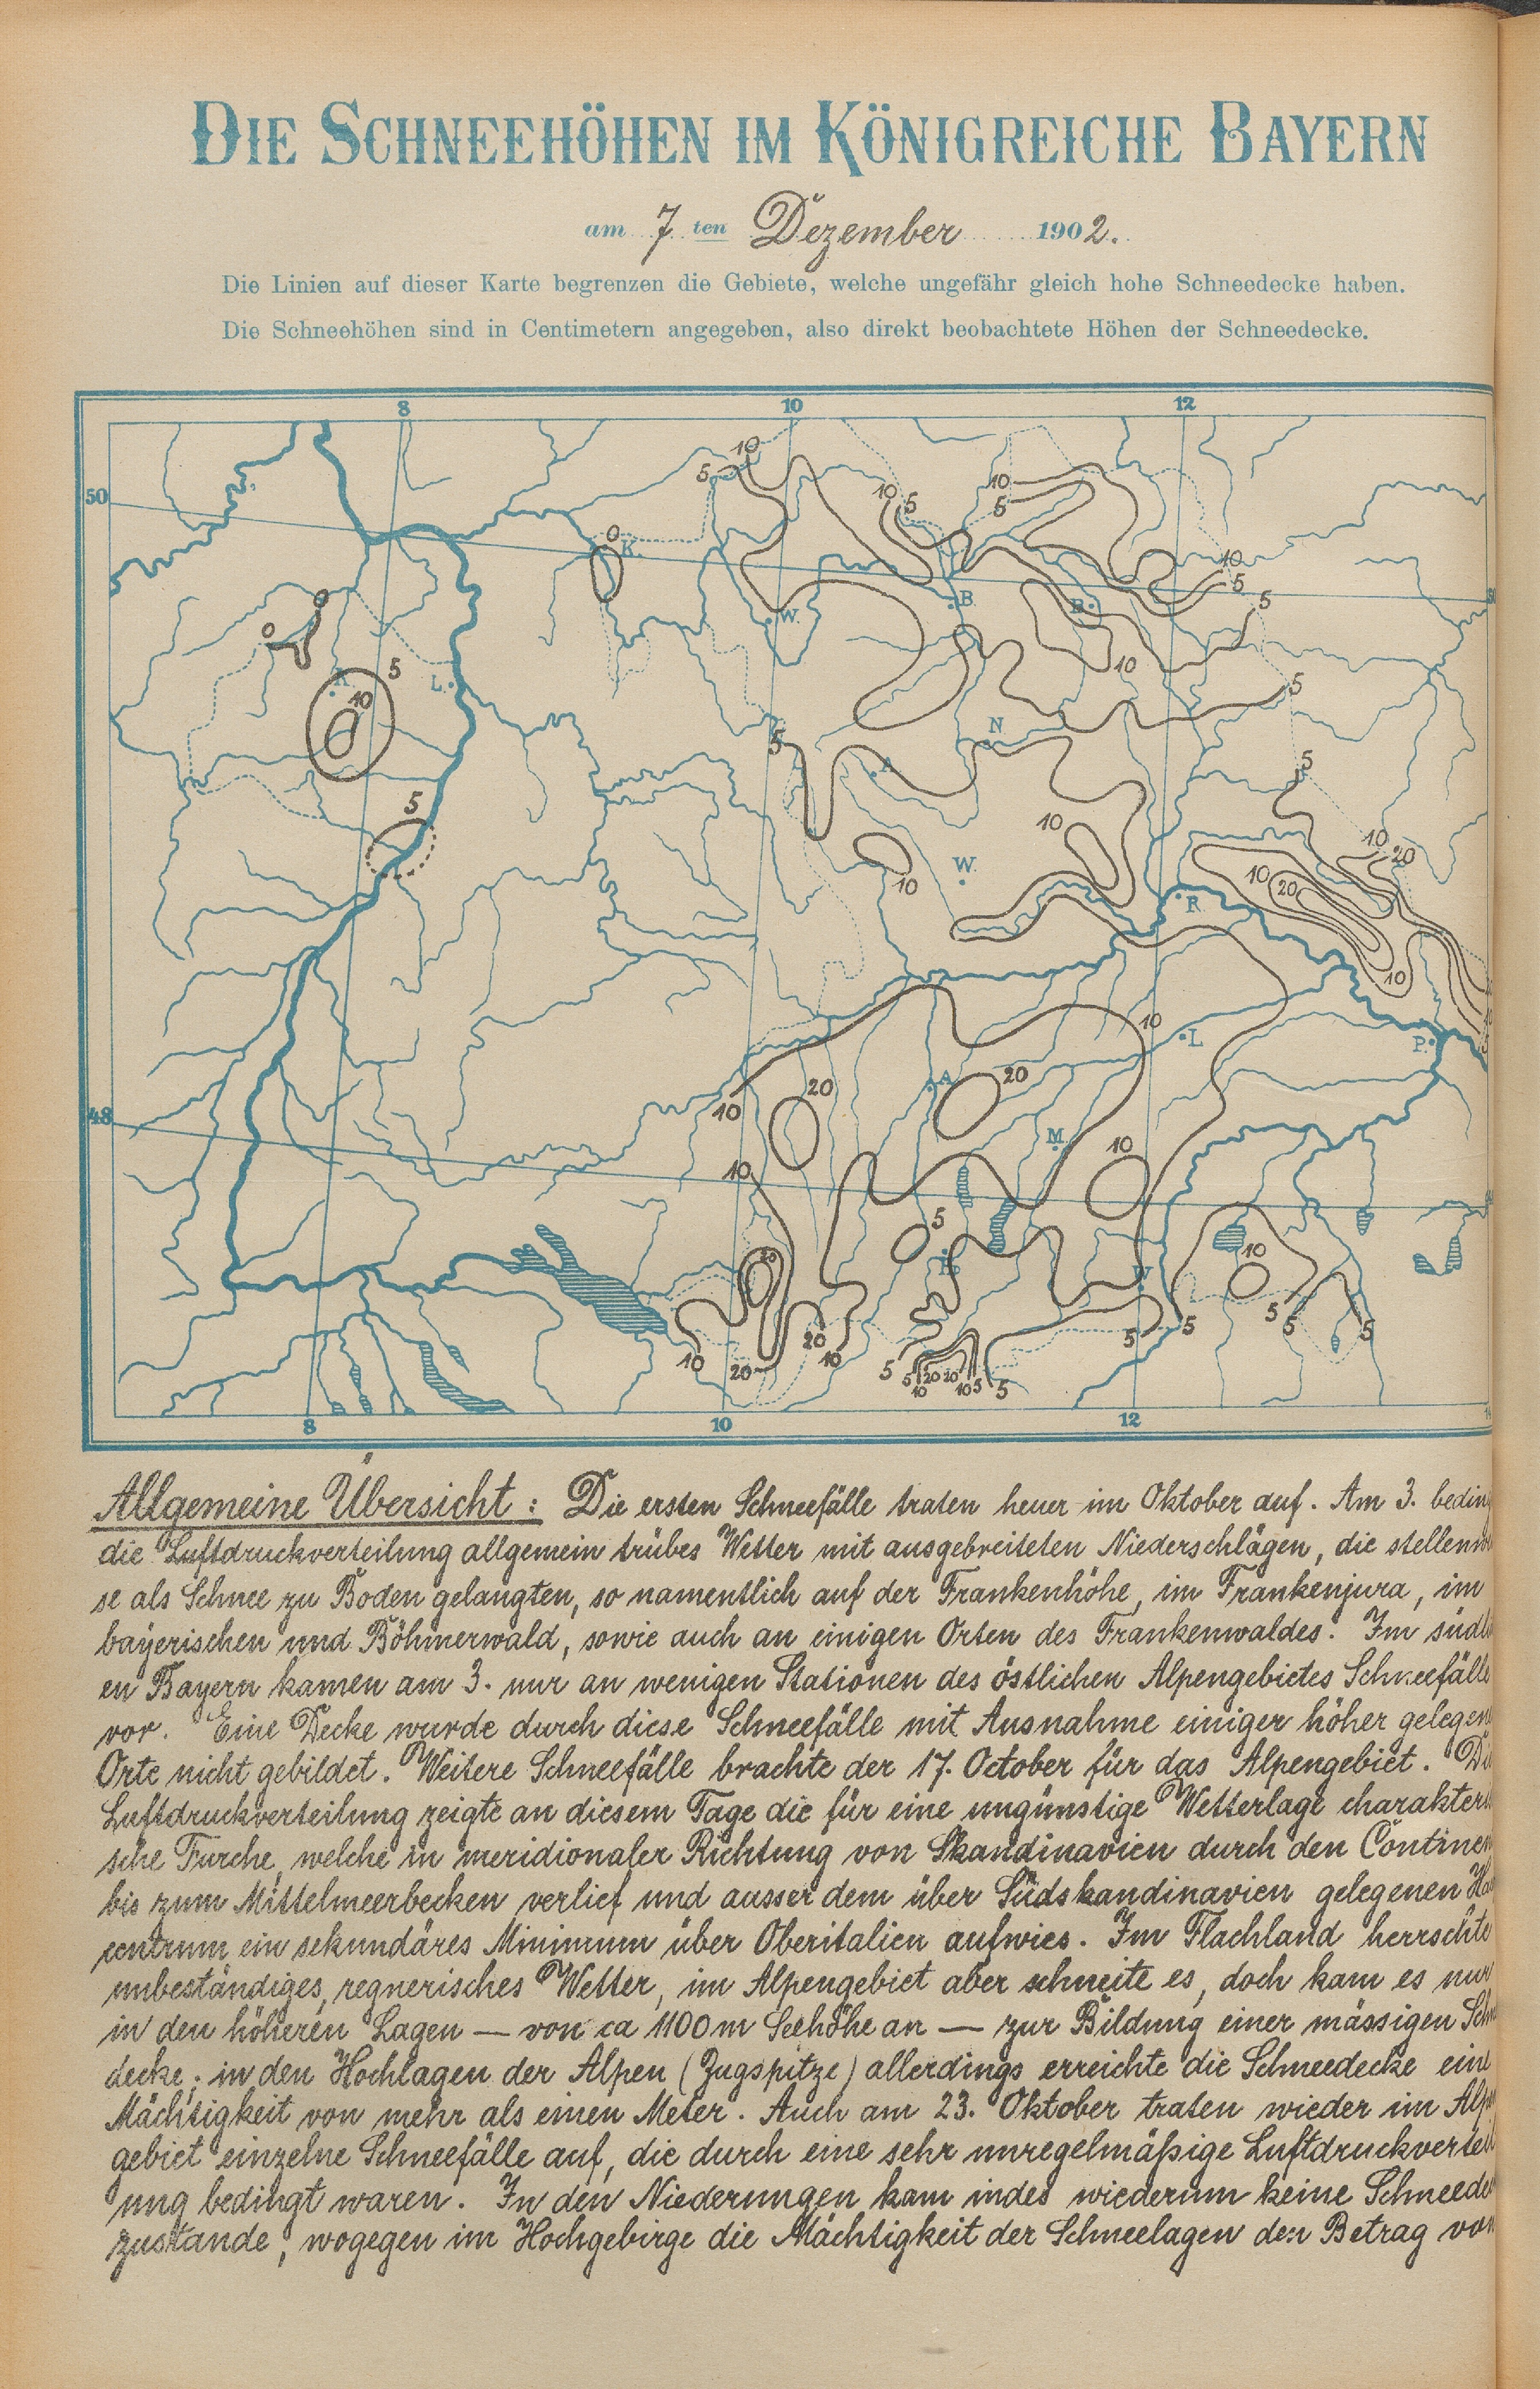 DIE SCHNEEHÖHEN IM KÖNIGREICHE BAYERN
am 7 ten Dezember 1902.
Die Linien auf dieser Karte begrenzen die Gebiete, welche ungefähr gleich hohe Schneedecke haben.
Die Schneehöhen sind in Centimetern angegeben, also direkt beobachtete Höhen der Schneedecke.
8 10 12
10
5
50
10 5
10
5
0
K.
10
5
0
5
B.
B.
W.
0
10
5
K.
L.
5
10
N
5
A.
5
5
10
10 20
W.
10
10 20
R.
10
10
L.
P.
20
A.
20
10
48
M.
10
10
5
20
P.
10
W
5
5
5
5
5
20
10
20
10
5
5 20 20
10 10 5 5
8 10 12
Allgemeine Übersicht: Die ersten Schneefälle traten heuer im Oktober auf. Am 3. beding
die Luftdruckverteilung allgemein trübes Wetter mit ausgebreiteten Niederschlägen, die stellenwei
se als Schnee zu Boden gelangten, so namentlich auf der Frankenhöhe, im Frankenjura, im
bayerischen und Böhmerwald, sowie auch an einigen Orten des Frankenwaldes. Im südli
en Bayern kamen am 3. nur an wenigen Stationen des östlichen Alpengebietes Schneefälle
vor. Eine Decke wurde durch diese Schneefälle mit Ausnahme einiger höher gelegen
Orte nicht gebildet. Weitere Schneefälle brachte der 17. October für das Alpengebiet. Di
Luftdruckverteilung zeigte an diesem Tage die für eine ungünstige Wetterlage charakteri
sche Furche, welche in meridionaler Richtung von Skandinavien durch den Continen
bis zum Mittelmeerbecken verlief und ausser dem über Südskandinavien gelegenen Ha
centrum ein sekundäres Minimum über Oberitalien aufwies. Im Flachland herrschte
unbeständiges, regnerisches Wetter, im Alpengebiet aber schneite es, doch kam es nur
in den höheren Lagen — von ca 1100 m Seehöhe an — zur Bildung einer mässigen Schn
decke; in den Hochlagen der Alpen (Zugspitze) allerdings erreichte die Schneedecke eine
Mächtigkeit von mehr als einen Meter. Auch am 23. Oktober traten wieder im Alpe
gebiet einzelne Schneefälle auf, die durch eine sehr unregelmäßige Luftdruckverteil
ung bedingt waren. In den Niederungen kam indes wiederum keine Schneede
zustande, wogegen im Hochgebirge die Mächtigkeit der Schneelagen den Betrag von